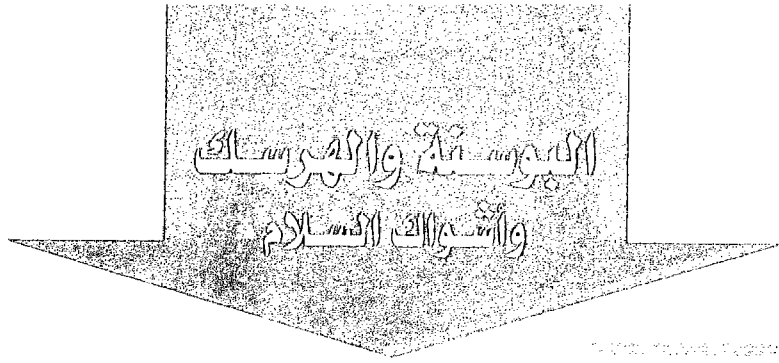 البوسنة والهرسك
وأشواك السلام